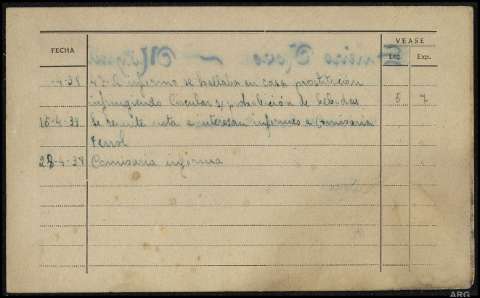 VEASE
FECHA
Leg. Exp.
-4-38 informo se hallaba en casa prostitución
infringiendo Circular s/ prohibición de bebidas 5 7
16-4-38 Se remite nota e interesan informes a Comisaria
Ferrol
28-4-38 Comisaria informa
ARG